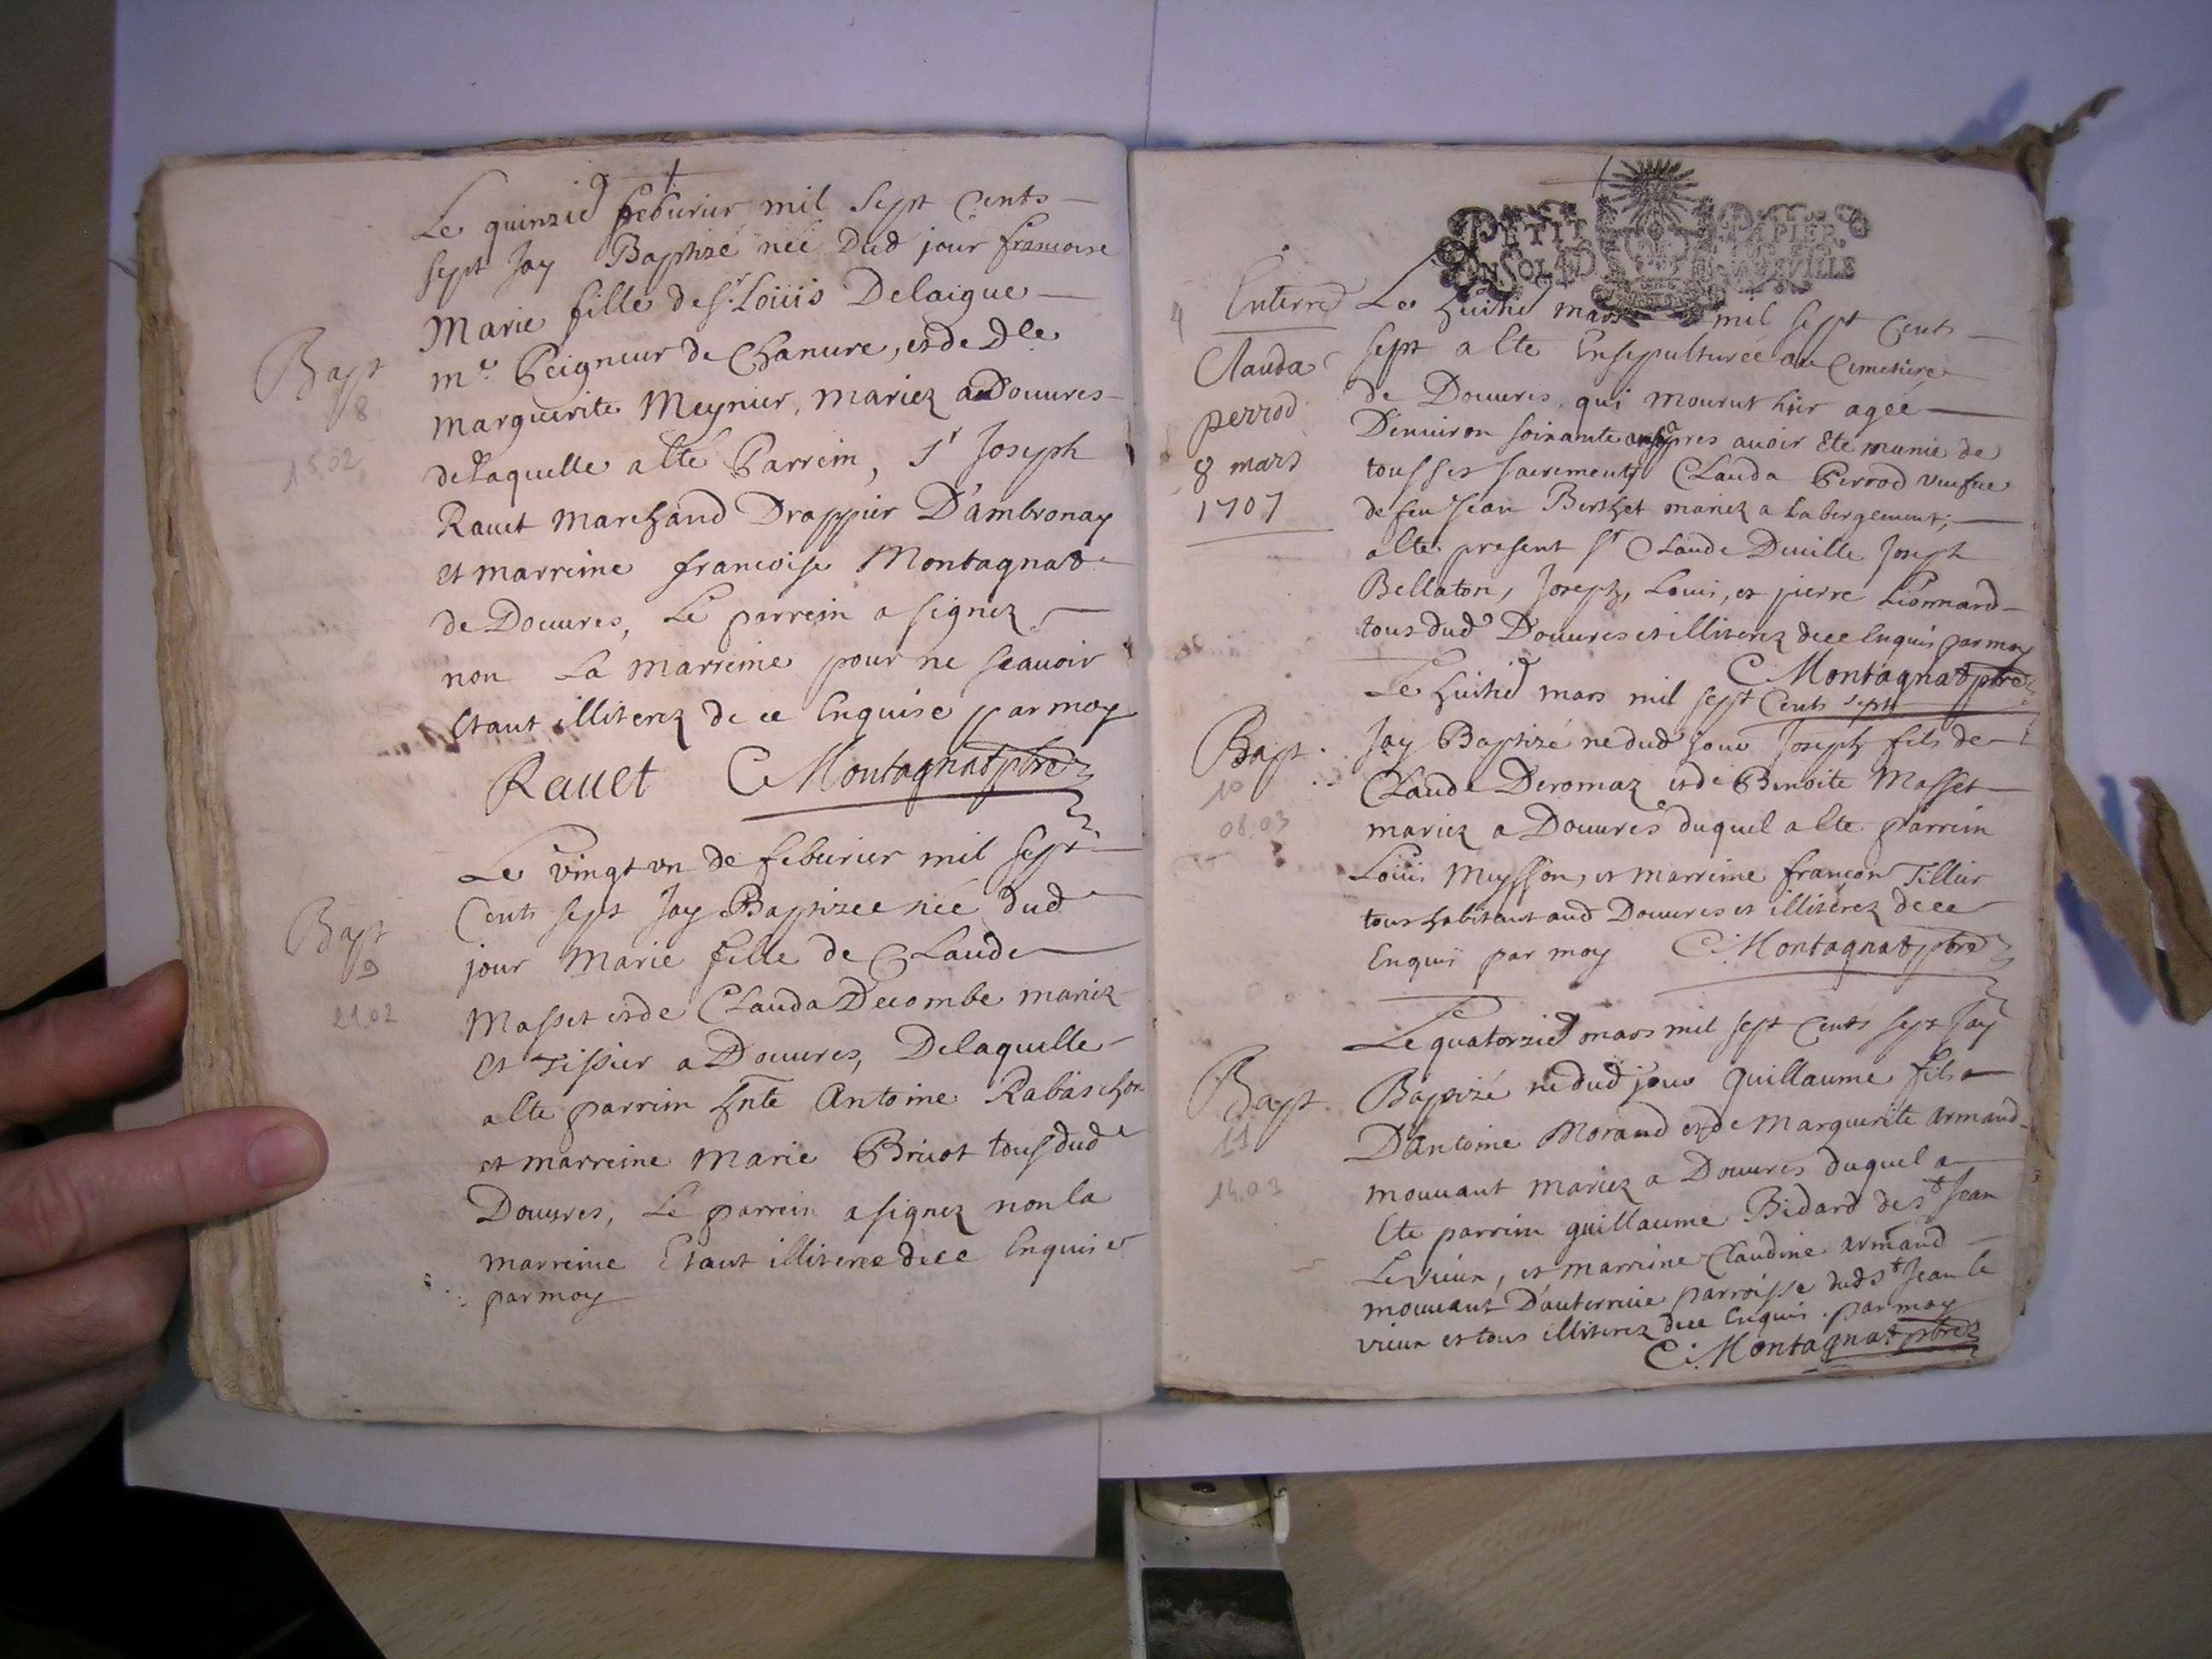 Le quinzie febvrier mil Sept Cents
sept Jay Baptizé née Dud jour francoise
Marie fille de Sr. Loüis Delaigue
Me. Peigneur de Chanvre, et de Dlle
Marguerite Meynier, mariez a Douvres
Bapt
8
15.02
de laquelle a été Parrein, Sr Joseph
Ravet Marchand Drappier D'ambronay
et marreine francoise Montagnat
de Douvres, Le parrein a signez
non La marreine pour ne scavoir
Etant illiterez de ce Enquise par moy
Ravet C Montagnat ptre
Le vingt un de febvrier mil sept
Cents sept Jay Baptizee née dud
Bapt
9
21.02
jour Marie fille de Claude
Masset et de Clauda Decombe mariez
et Tissier a Douvres, Delaquelle
a été parrein Antoine Rabaschon
et marreine Marie Brivot tous dud
Douvres, Le parrein a signez non la
marreine Etant illiteree de ce Enquise
par moy
PETIT PAPIER
4
Enterred
Clauda
perrod
8 mars
1707
Le huitie mars mil sept Cents
sept a été Ensepulturée au Cemetiere
de Douvres, qui mourut hier agée
D'environ soixante ans apres avoir Eté munie de
tous ses sacrements Clauda Perrod veufve
de feu Jean Berthet mariez a Labergement;
a été present Sr Claude Deville Joseph
Bellaton, Joseph, Louis, et pierre Lionnard
tous dud Douvres et illiterez de ce Enquis par moy
C Montagnat ptre
Le huitie mars mil sept Cents sept
Bapt.
10
08.03
Jay Baptizé ne dud jour Joseph fils de
Claude Deromaz et de Benoite Masset
mariez a Douvres duquel a été parrein
Loüis Meysson, et marreine francon Tillier
tous habitant aud Douvres et illiterez de ce
Enquis par moy C. Montagnat ptre
Le quatorzie mars mil sept Cents sept Jay
Bapt.
11
14.03
Baptizé ne dud jour Guillaume fils
D'Antoine Morand et de Marguerite Armand
mouvant mariez a Douvres duquel a
Eté parrein guillaume Bidard de St Jean
Le vieux, et marreine Claudine Armand
mouvant D'auterrive parroisse dud St Jean le
vieux et tous illiterez de ce Enquis par moy
C. Montagnat ptre